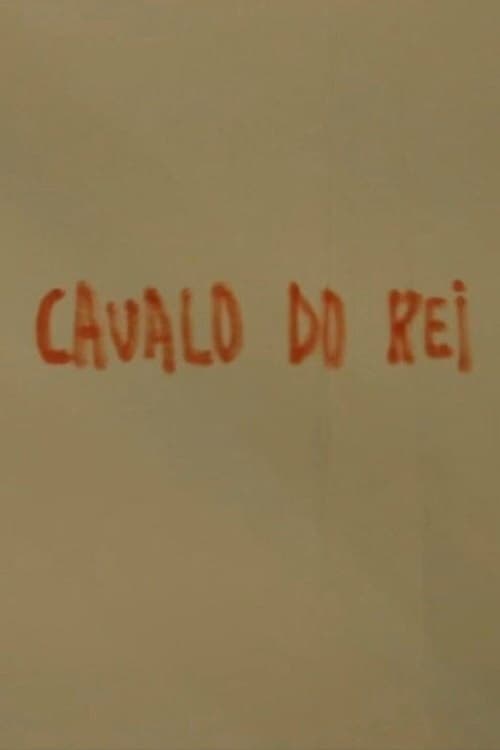 CAVALO DO REi